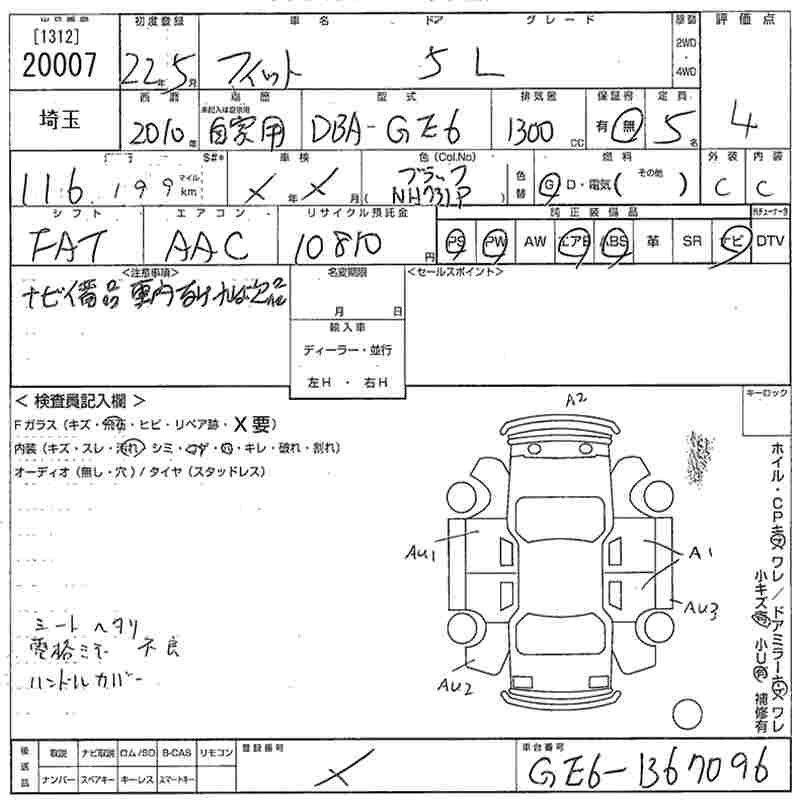 [1312]
20007
初度登録 車名 ドア グレード 駆動 評価点
22年5月 フィット 5 L 2WD・4WD
埼玉
西暦 車歴 型式 排気量 保証書 定員
未記入は自家用
2010年 自家用 DBA-GE6 1300cc 有・無 5名 4
S#* 車検 色(Col.No) 色替 燃料 その他 外装 内装
116,199 マイル km X年X月 ブラック ( NH731P ) G D・電気( ) C C
シフト エアコン リサイクル預託金 純正装備品
FAT AAC 10810円 PS PW AW エアB ABS 革 SR ナビ DTV
<注意事項> 名変期限 <セールスポイント>
ナビイ備品 車内なければ欠品
月 日
輸入車
ディーラー・並行
左H・右H
<検査員記入欄> キーロック
Fガラス(キズ・飛石・ヒビ・リペア跡・X要)
内装(キズ・スレ・汚れ・シミ・コゲ・穴・キレ・破れ・割れ)
オーディオ(無し・穴)/タイヤ(スタッドレス)
A2
AU1 A1
AU3
AU2
シートヘタリ
電格ミラー不良
ハンドルカバー
ホイル・CPキズワレ/ドアミラーキズワレ
小キズ有 小U有 補修有
後送品 取説 ナビ取説 ロム/SD B-CAS リモコン 登録番号 車台番号
ナンバー スペアキー キーレス スマートキー X GE6-1367096